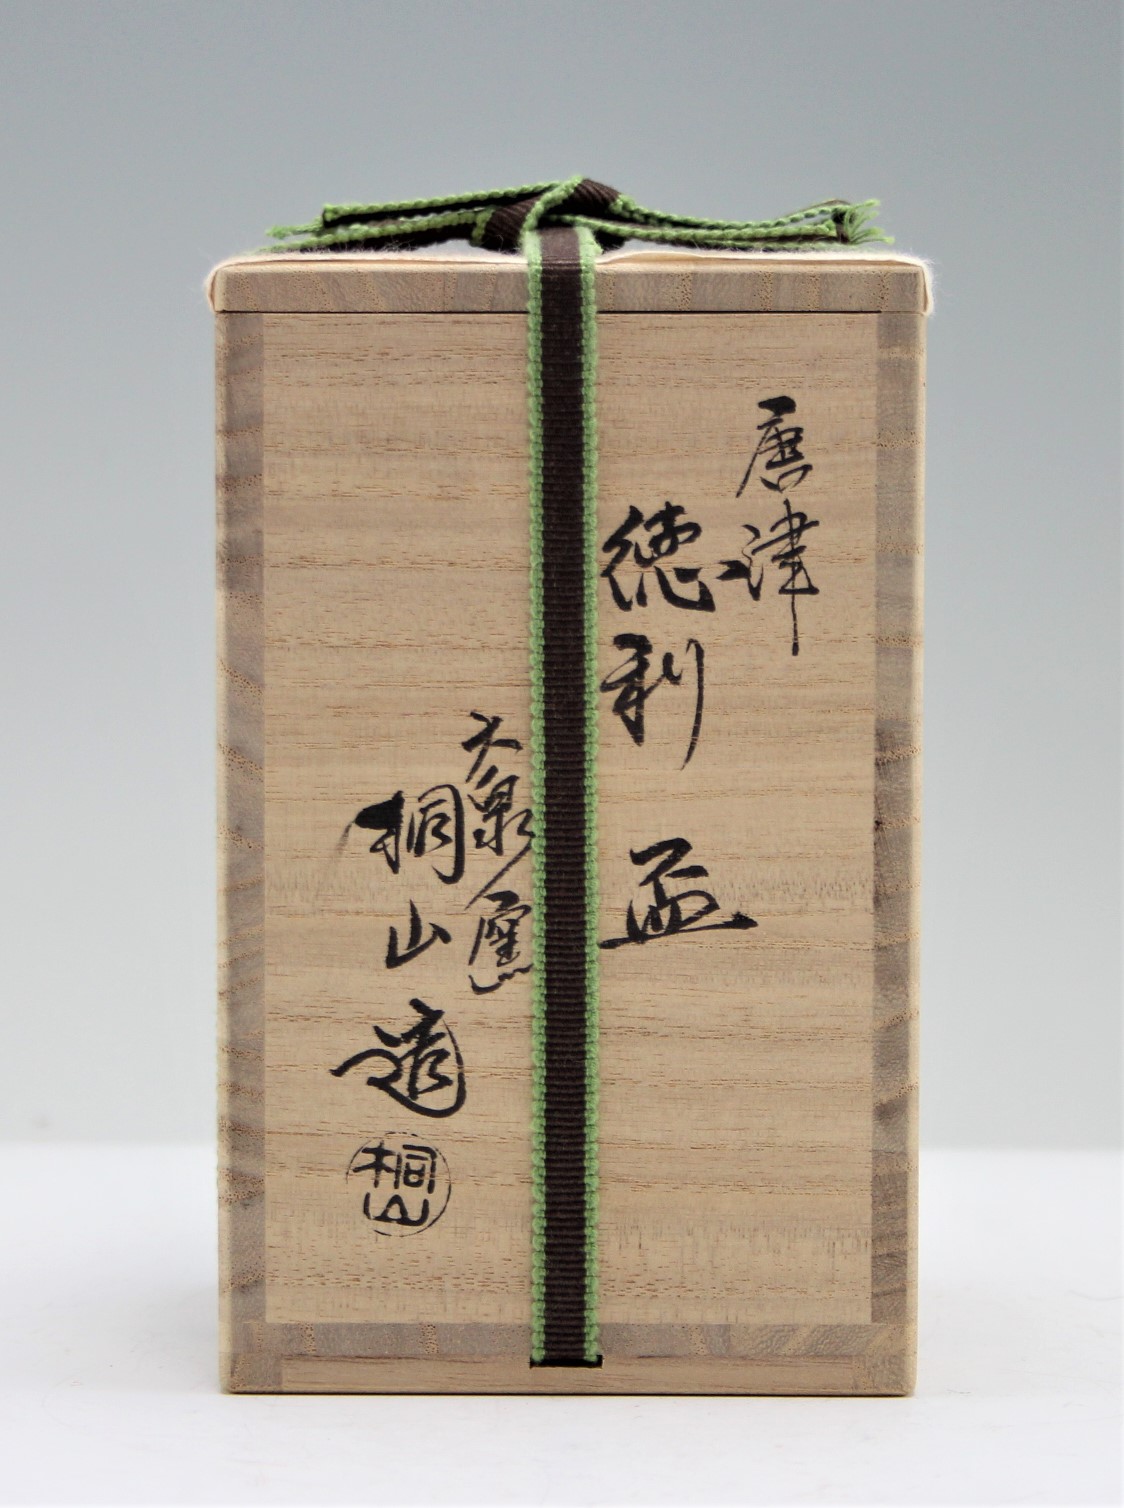 唐津
徳利
盃
大泉窯
桐山造
桐山